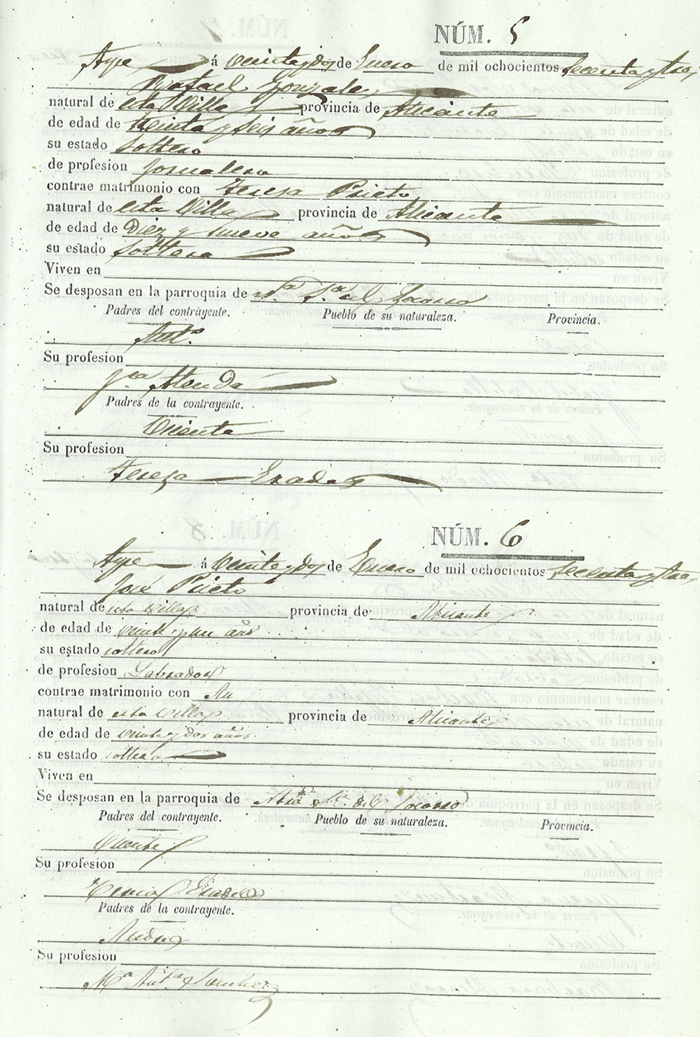 NÚM. 5
Aspe á veinte y dos de Enero de mil ochocientos sesenta y tres
Rafael Gonzalez
natural de esta Villa provincia de Alicante
de edad de treinta y seis años
su estado soltero
de profesion Jornalero
contrae matrimonio con Teresa Prieto
natural de esta Villa provincia de Alicante
de edad de Diez y nueve años
su estado soltera
Viven en
Se desposan en la parroquia de Ntra Sra del Socorro
Padres del contrayente. Pueblo de su naturaleza. Provincia.
Anto
Su profesion
Padres de la contrayente.
Vicente
Su profesion
Teresa
NÚM. 6
Aspe á veinte y dos de Enero de mil ochocientos sesenta y tres
José Prieto
natural de esta villa provincia de Alicante
de edad de veinte y un años
su estado soltero
de profesion Labrador
contrae matrimonio con
natural de esta villa provincia de Alicante
de edad de veinte y dos años
su estado soltera
Viven en
Se desposan en la parroquia de Ntra Sra del Socorro
Padres del contrayente. Pueblo de su naturaleza. Provincia.
Vicente
Su profesion
Padres de la contrayente.
Andres
Su profesion
Ma Anta Sanchez